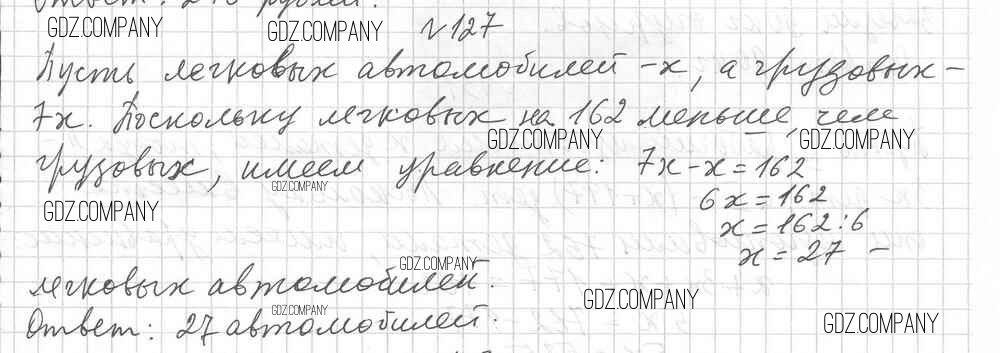 Ответ: 216 рублей.
GDZ.COMPANY GDZ.COMPANY №127
Пусть легковых автомобилей – х, а грузовых –
7х. Поскольку легковых на 162 меньше, чем
GDZ.COMPANY GDZ.COMPANY
грузовых, имеем уравнение: 7х-х=162
GDZ.COMPANY
6х=162
GDZ.COMPANY
х=162:6
х=27 –
GDZ.COMPANY
легковых автомобилей.
GDZ.COMPANY
GDZ.COMPANY
Ответ: 27 автомобилей.
GDZ.COMPANY